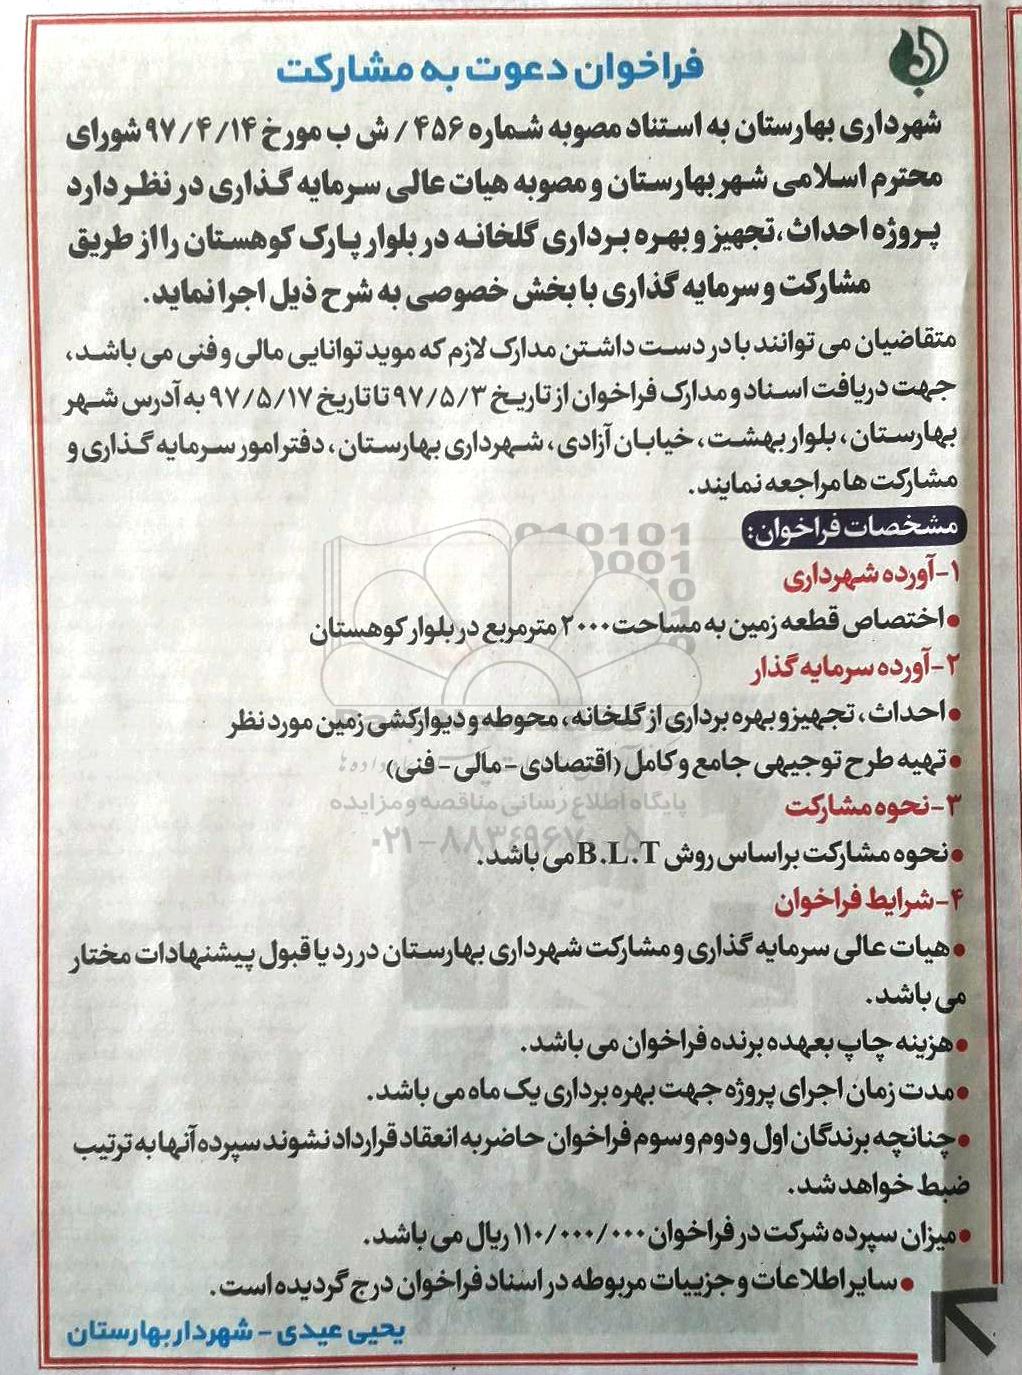 فراخوان دعوت به مشارکت
شهرداری بهارستان به استناد مصوبه شماره ۴۵۶ / ش ب مورخ ۹۷/۴/۱۴ شورای
محترم اسلامی شهر بهارستان و مصوبه هیات عالی سرمایه گذاری در نظر دارد
پروژه احداث، تجهیز و بهره برداری گلخانه در بلوار پارک کوهستان را از طریق
مشارکت و سرمایه گذاری با بخش خصوصی به شرح ذیل اجرا نماید.
متقاضیان می توانند با در دست داشتن مدارک لازم که موید توانایی مالی و فنی می باشد،
جهت دریافت اسناد و مدارک فراخوان از تاریخ ۹۷/۵/۳ تا تاریخ ۹۷/۵/۱۷ به آدرس شهر
بهارستان، بلوار بهشت، خیابان آزادی، شهرداری بهارستان، دفتر امور سرمایه گذاری و
مشارکت ها مراجعه نمایند.
مشخصات فراخوان:
۱-آورده شهرداری
• اختصاص قطعه زمین به مساحت ۲۰۰۰ مترمربع در بلوار کوهستان
۲-آورده سرمایه گذار
• احداث، تجهیز و بهره برداری از گلخانه، محوطه و دیوارکشی زمین مورد نظر
• تهیه طرح توجیهی جامع و کامل (اقتصادی - مالی - فنی)
پایگاه اطلاع رسانی مناقصه و مزایده
۳-نحوه مشارکت
۰۲۱-۸۸۳۴۹۶۷۰-۵
• نحوه مشارکت براساس روش B.L.T می باشد.
۴-شرایط فراخوان
• هیات عالی سرمایه گذاری و مشارکت شهرداری بهارستان در رد یا قبول پیشنهادات مختار
می باشد.
• هزینه چاپ بعهده برنده فراخوان می باشد.
• مدت زمان اجرای پروژه جهت بهره برداری یک ماه می باشد.
• چنانچه برندگان اول و دوم و سوم فراخوان حاضر به انعقاد قرارداد نشوند سپرده آنها به ترتیب
ضبط خواهد شد.
• میزان سپرده شرکت در فراخوان ۱۱۰/۰۰۰/۰۰۰ ریال می باشد.
• سایر اطلاعات و جزییات مربوطه در اسناد فراخوان درج گردیده است.
یحیی عیدی - شهردار بهارستان